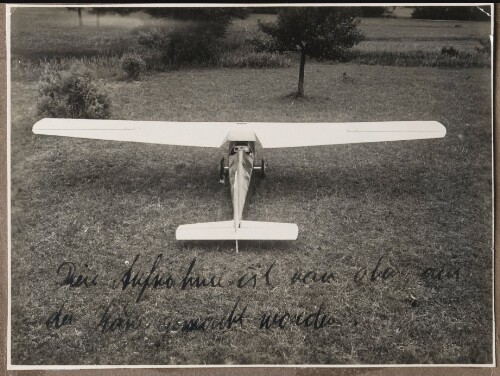 Diese Aufnahme ist von oben aus
dem gemacht worden.